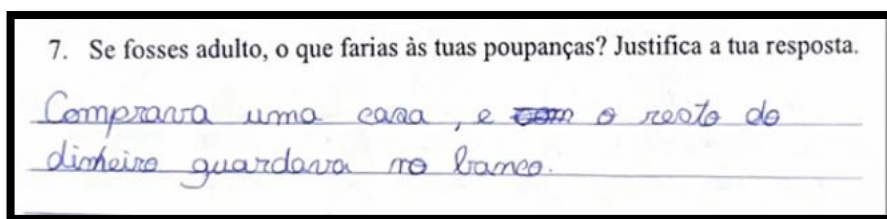 7. Se fosses adulto, o que farias às tuas poupanças? Justifica a tua resposta.
Comprava uma casa, e com o resto do
dinheiro guardava no banco.